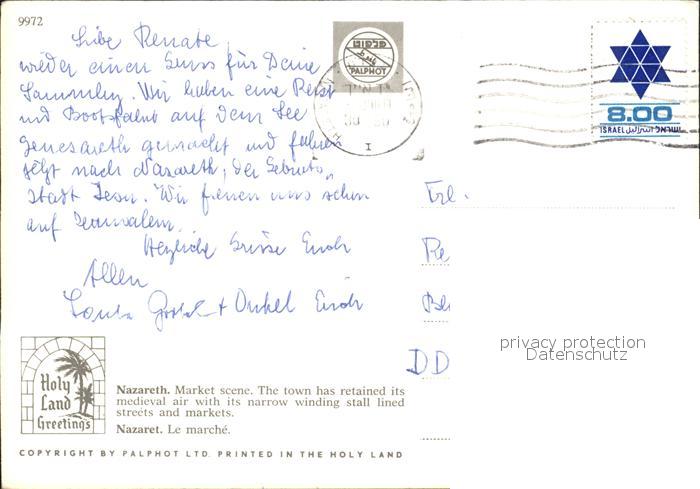 9972
Liebe Renate,
wieder einen Gruss für Deine
Sammlung. Wir haben eine
und Bootsfahrt auf dem See
Genesareth gemacht und fahren
jetzt nach Nazareth, der Geburts-
stadt Jesu. Wir freuen uns schon
auf Jerusalem.
Herzliche Grüsse Euch
Allen
+ Onkel Erich
פלפוט
PALPHOT
I
8.00
ISRAEL اسرائيل ישראל
Frl.
Re
Be
DD
privacy protection
Datenschutz
Holy
Land
Greetings
Nazareth. Market scene. The town has retained its
medieval air with its narrow winding stall lined
streets and markets.
Nazaret. Le marché.
COPYRIGHT BY PALPHOT LTD. PRINTED IN THE HOLY LAND